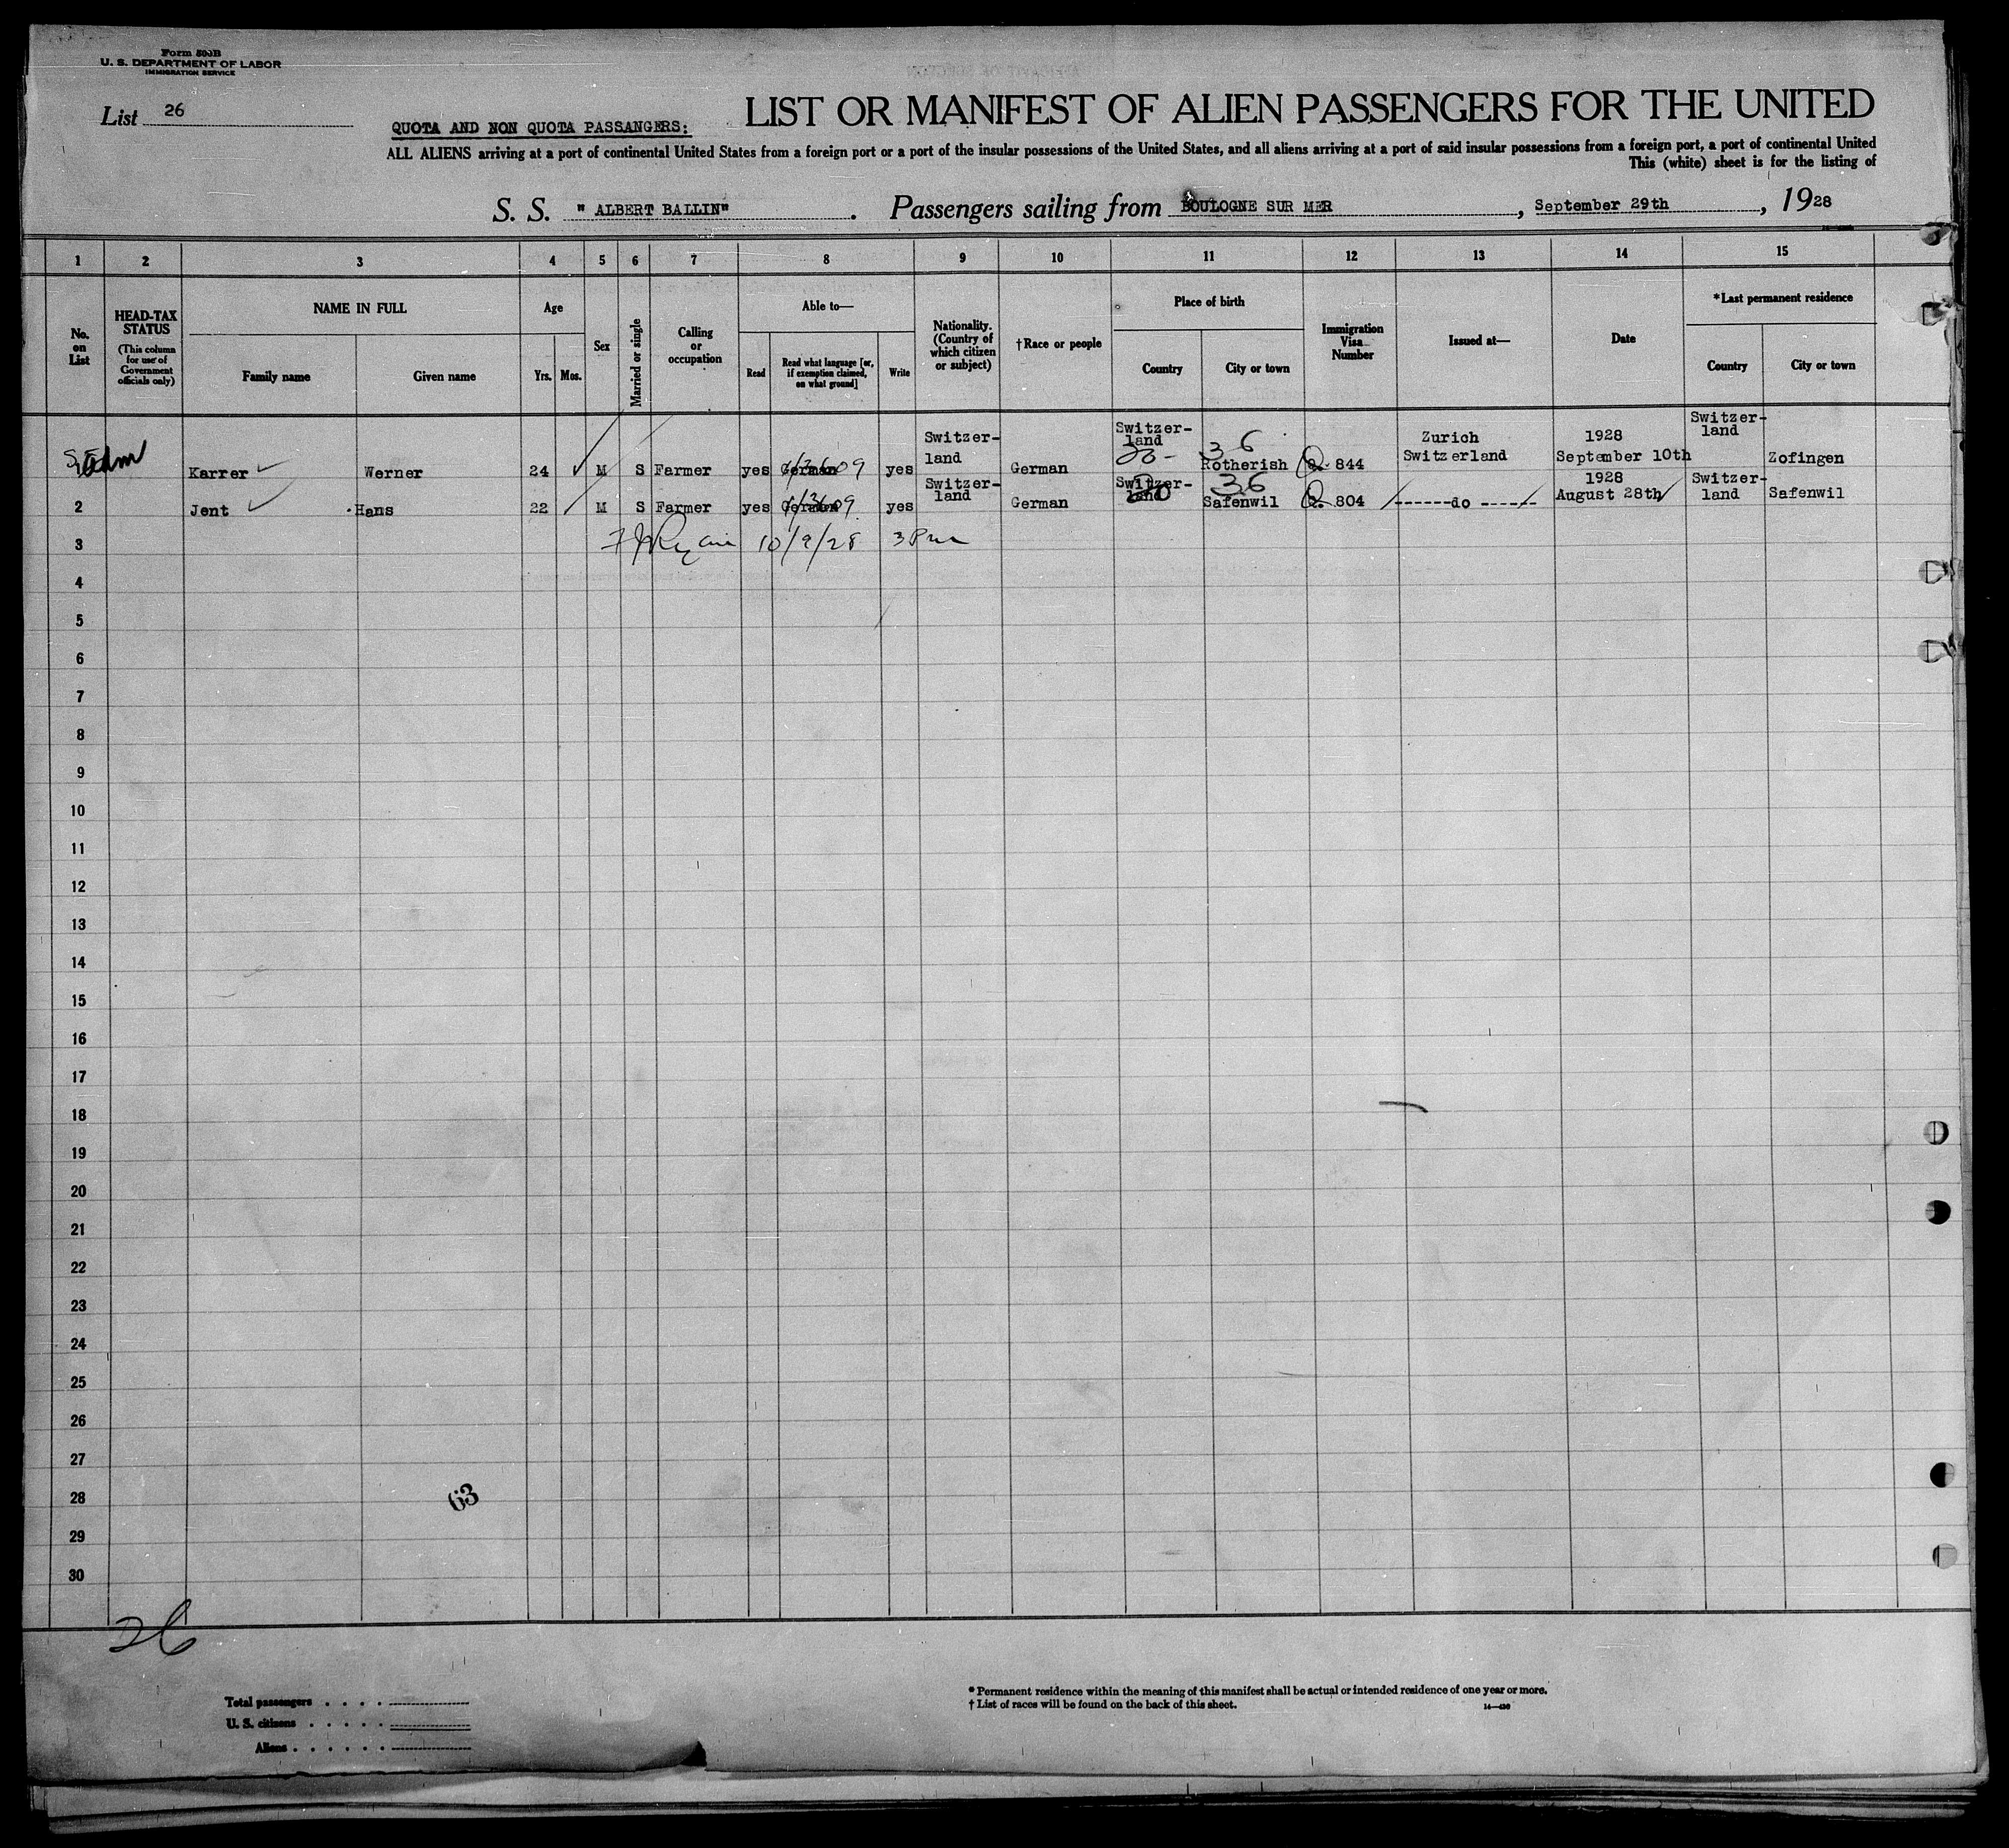 Form 500B
U. S. DEPARTMENT OF LABOR
IMMIGRATION SERVICE
List 26
LIST OR MANIFEST OF ALIEN PASSENGERS FOR THE UNITED
QUOTA AND NON QUOTA PASSANGERS:
ALL ALIENS arriving at a port of continental United States from a foreign port or a port of the insular possessions of the United States, and all aliens arriving at a port of said insular possessions from a foreign port, a port of continental United
This (white) sheet is for the listing of
S. S. " ALBERT BALLIN" . Passengers sailing from BOULOGNE SUR MER , September 29th , 1928
1 2 3 4 5 6 7 8 9 10 11 12 13 14 15
No. on List
HEAD-TAX STATUS
(This column for use of Government officials only)
NAME IN FULL
Family name Given name
Age
Yrs. Mos.
Sex
Married or single
Calling or occupation
Able to—
Read
Read what language [or, if exemption claimed, on what ground]
Write
Nationality. (Country of which citizen or subject)
†Race or people
Place of birth
Country City or town
Immigration Visa Number
Issued at—
Date
*Last permanent residence
Country City or town
Karrer Werner 24 M S Farmer yes German yes Switzer-land German Switzer-land 36 Rotherish 844 Zurich Switzerland 1928 September 10th Switzer-land Zofingen
2 Jent Hans 22 M S Farmer yes German yes Switzer-land German Switzer-land 36 Safenwil 804 ------do ------ 1928 August 28th Switzer-land Safenwil
3 10/9/28 3 Pm
4
5
6
7
8
9
10
11
12
13
14
15
16
17
18
19
20
21
22
23
24
25
26
27
28
63
29
30
26
Total passengers . . . .
U. S. citizens . . . . .
Aliens . . . . . .
* Permanent residence within the meaning of this manifest shall be actual or intended residence of one year or more.
† List of races will be found on the back of this sheet.